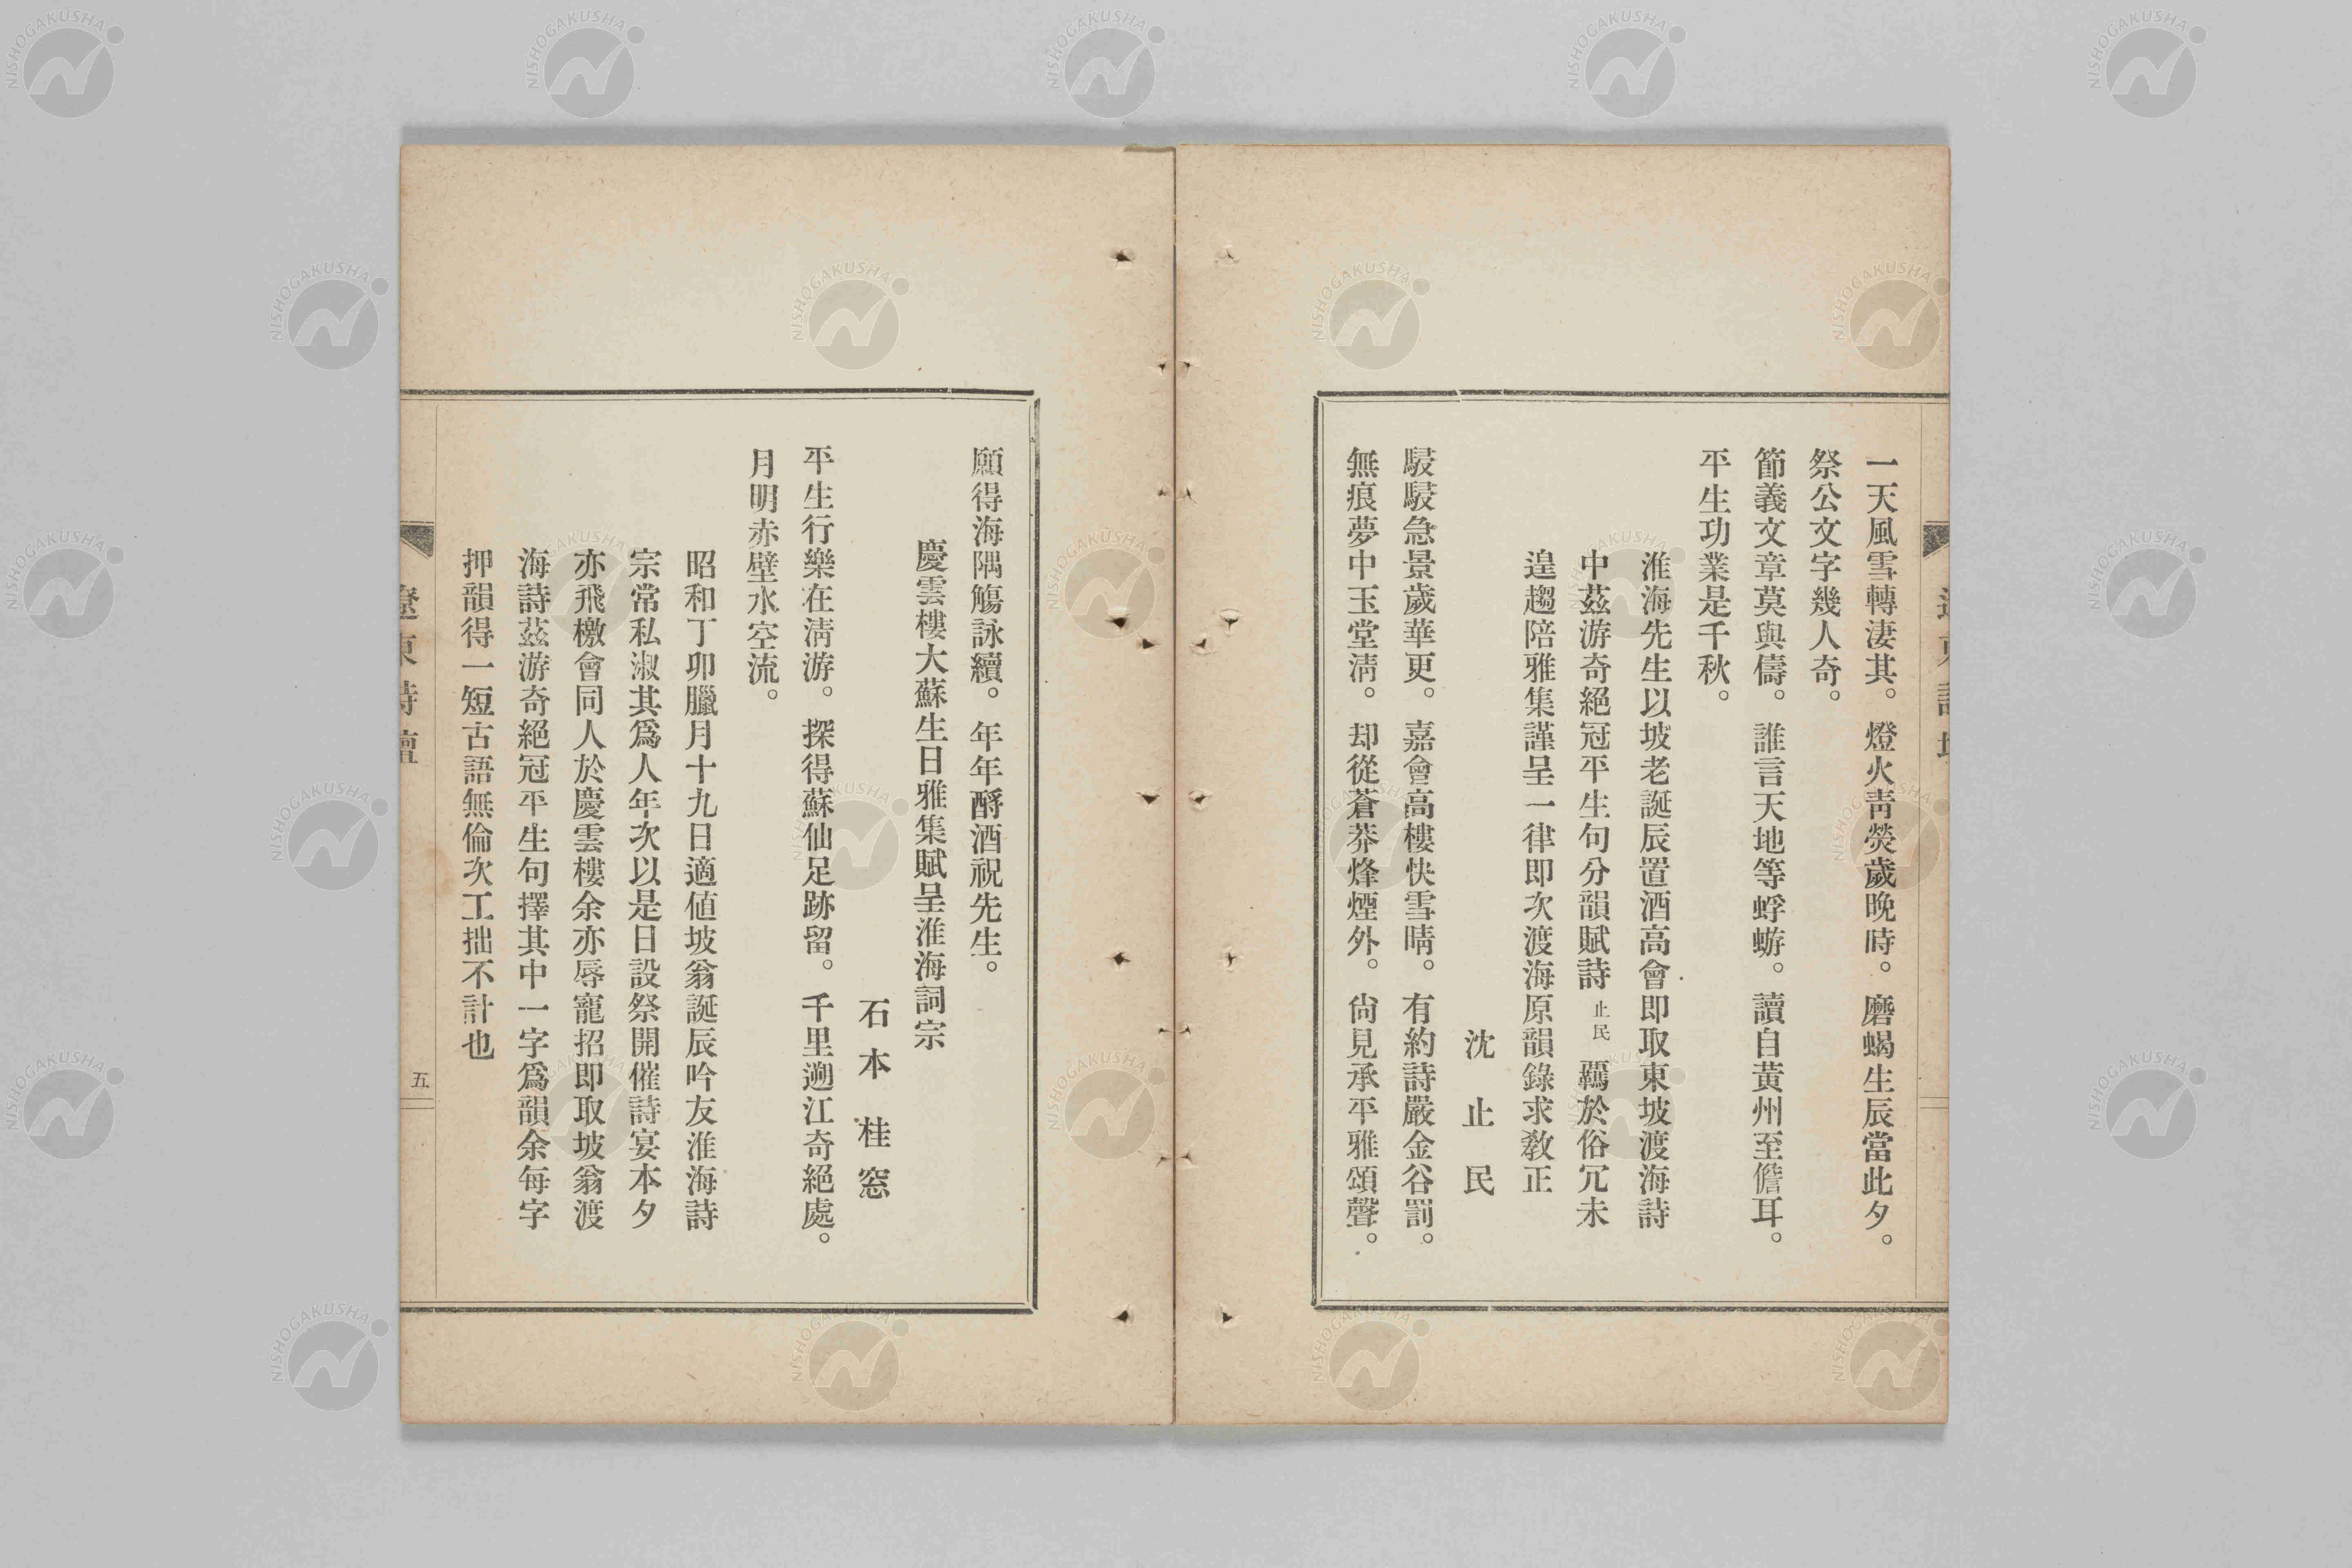 一天風雪轉淒其。燈火靑熒歲晩時。磨蝎生辰當此夕。
祭公文字幾人奇。
節義文章莫與儔。誰言天地等蜉蝣。讀自黃州至儋耳。
平生功業是千秋。
淮海先生以坡老誕辰置酒高會即取東坡渡海詩
中茲游奇絕冠平生句分韻賦詩止民羈於俗冗未
遑趨陪雅集謹呈一律即次渡海原韻錄求敎正
沈止民
駸駸急景歲華更。嘉會高樓快雪晴。有約詩嚴金谷罰。
無痕夢中玉堂淸。却從蒼莽烽煙外。尙見承平雅頌聲。
願得海隅觴詠續。年年酹酒祝先生。
慶雲樓大蘇生日雅集賦呈淮海詞宗
石本桂窓
平生行樂在淸游。探得蘇仙足跡留。千里遡江奇絕處。
月明赤壁水空流。
昭和丁卯臘月十九日適値坡翁誕辰吟友淮海詩
宗常私淑其爲人年次以是日設祭開催詩宴本夕
亦飛檄會同人於慶雲樓余亦辱寵招即取坡翁渡
海詩茲游奇絕冠平生句擇其中一字爲韻余每字
押韻得一短古語無倫次工拙不計也
遼東詩壇
五
NISHOGAKUSHA